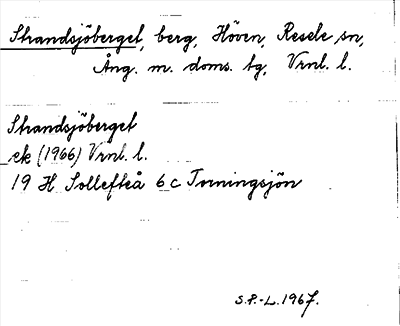 Strandsjöberget, berg, Höven, Resele sn,
Ång. m. doms. tg, Vrnl. l.
Strandsjöberget
ek (1966) Vrnl. l.
19 H Sollefteå 6 c Torningsjön
S.P.-L. 1967.